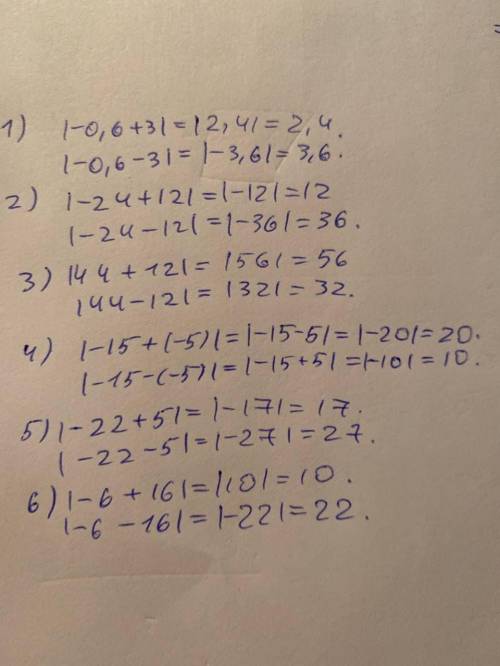 1) |-0,6+3|=|2,4|=2,4.
|-0,6-3|=|-3,6|=3,6.
2) |-24+12|=|-12|=12
|-24-12|=|-36|=36.
3) |44+12|=|56|=56
|44-12|=|32|=32.
4) |-15+(-5)|=|-15-5|=|-20|=20.
|-15-(-5)|=|-15+5|=|-10|=10.
5) |-22+5|=|-17|=17.
|-22-5|=|-27|=27.
6) |-6+16|=|10|=10.
|-6-16|=|-22|=22.